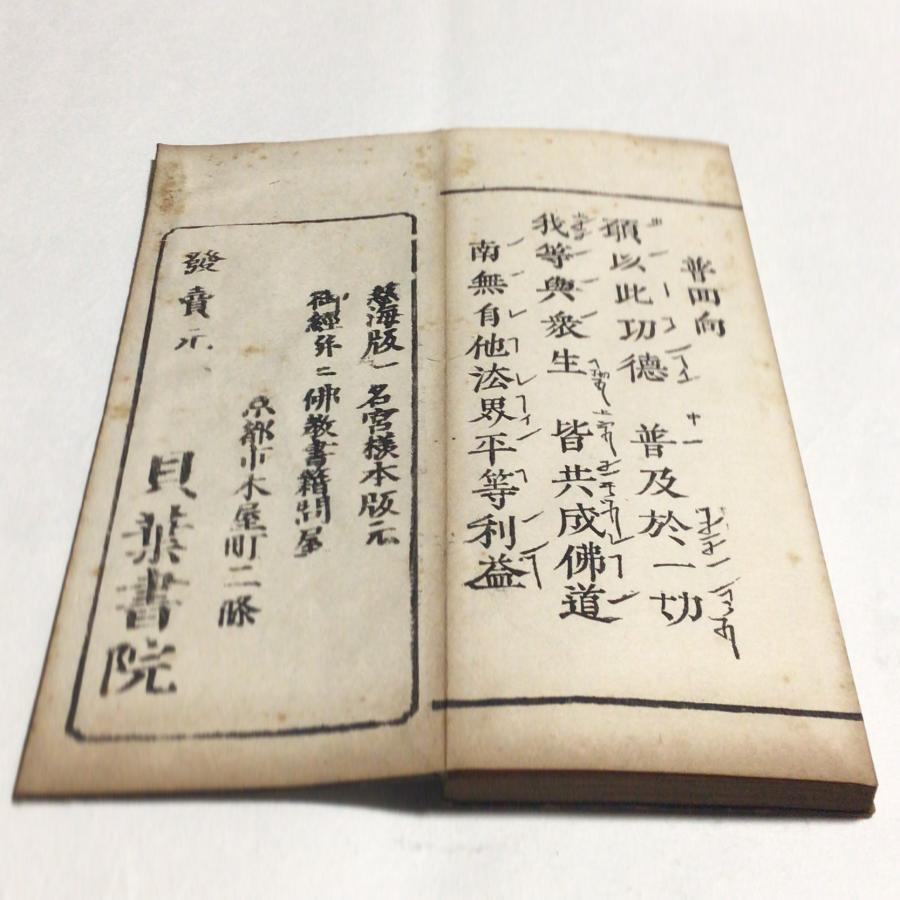 普回向
願以此功德　普及於一切
我等與衆生　皆共成佛道
南無自他法界平等利益
慈海版一名宮樣本版元
御經并ニ佛教書籍問屋
京都市木屋町二條
發賣元
貝葉書院